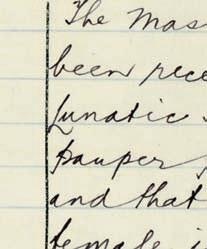 The Mas
been rece
Lunatic
Pauper
and that
female i